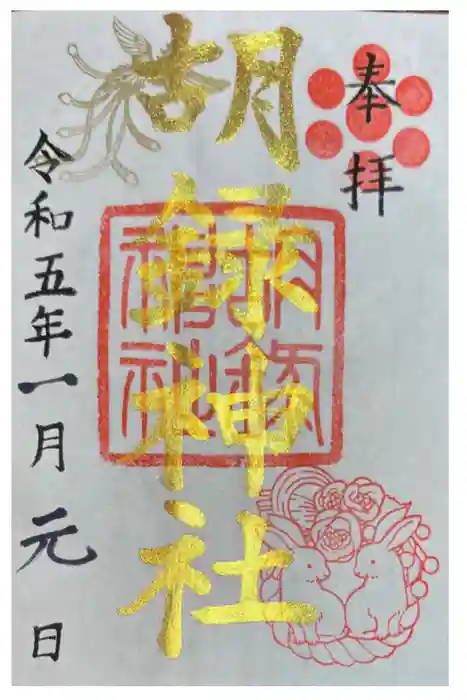 奉拝
胡録神社
令和五年一月元日